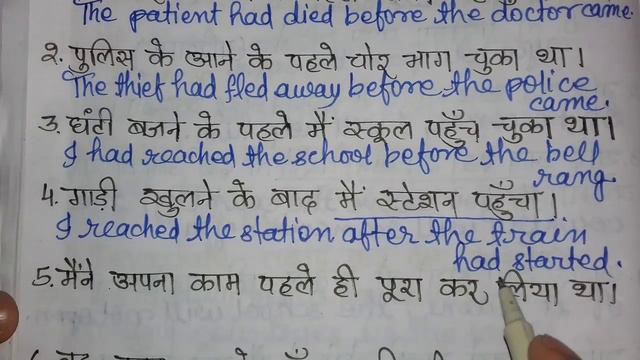 The patient had died before the doctor came.
2. पुलिस के आने के पहले चोर भाग चुका था।
The thief had fled away before the police
came.
3. घंटी बजने के पहले मैं स्कूल पहुँच चुका था।
I had reached the school before the bell
rang.
4. गाड़ी खुलने के बाद मैं स्टेशन पहुँचा।
I reached the station after the train
had started.
5. मैंने अपना काम पहले ही पूरा कर लिया था।